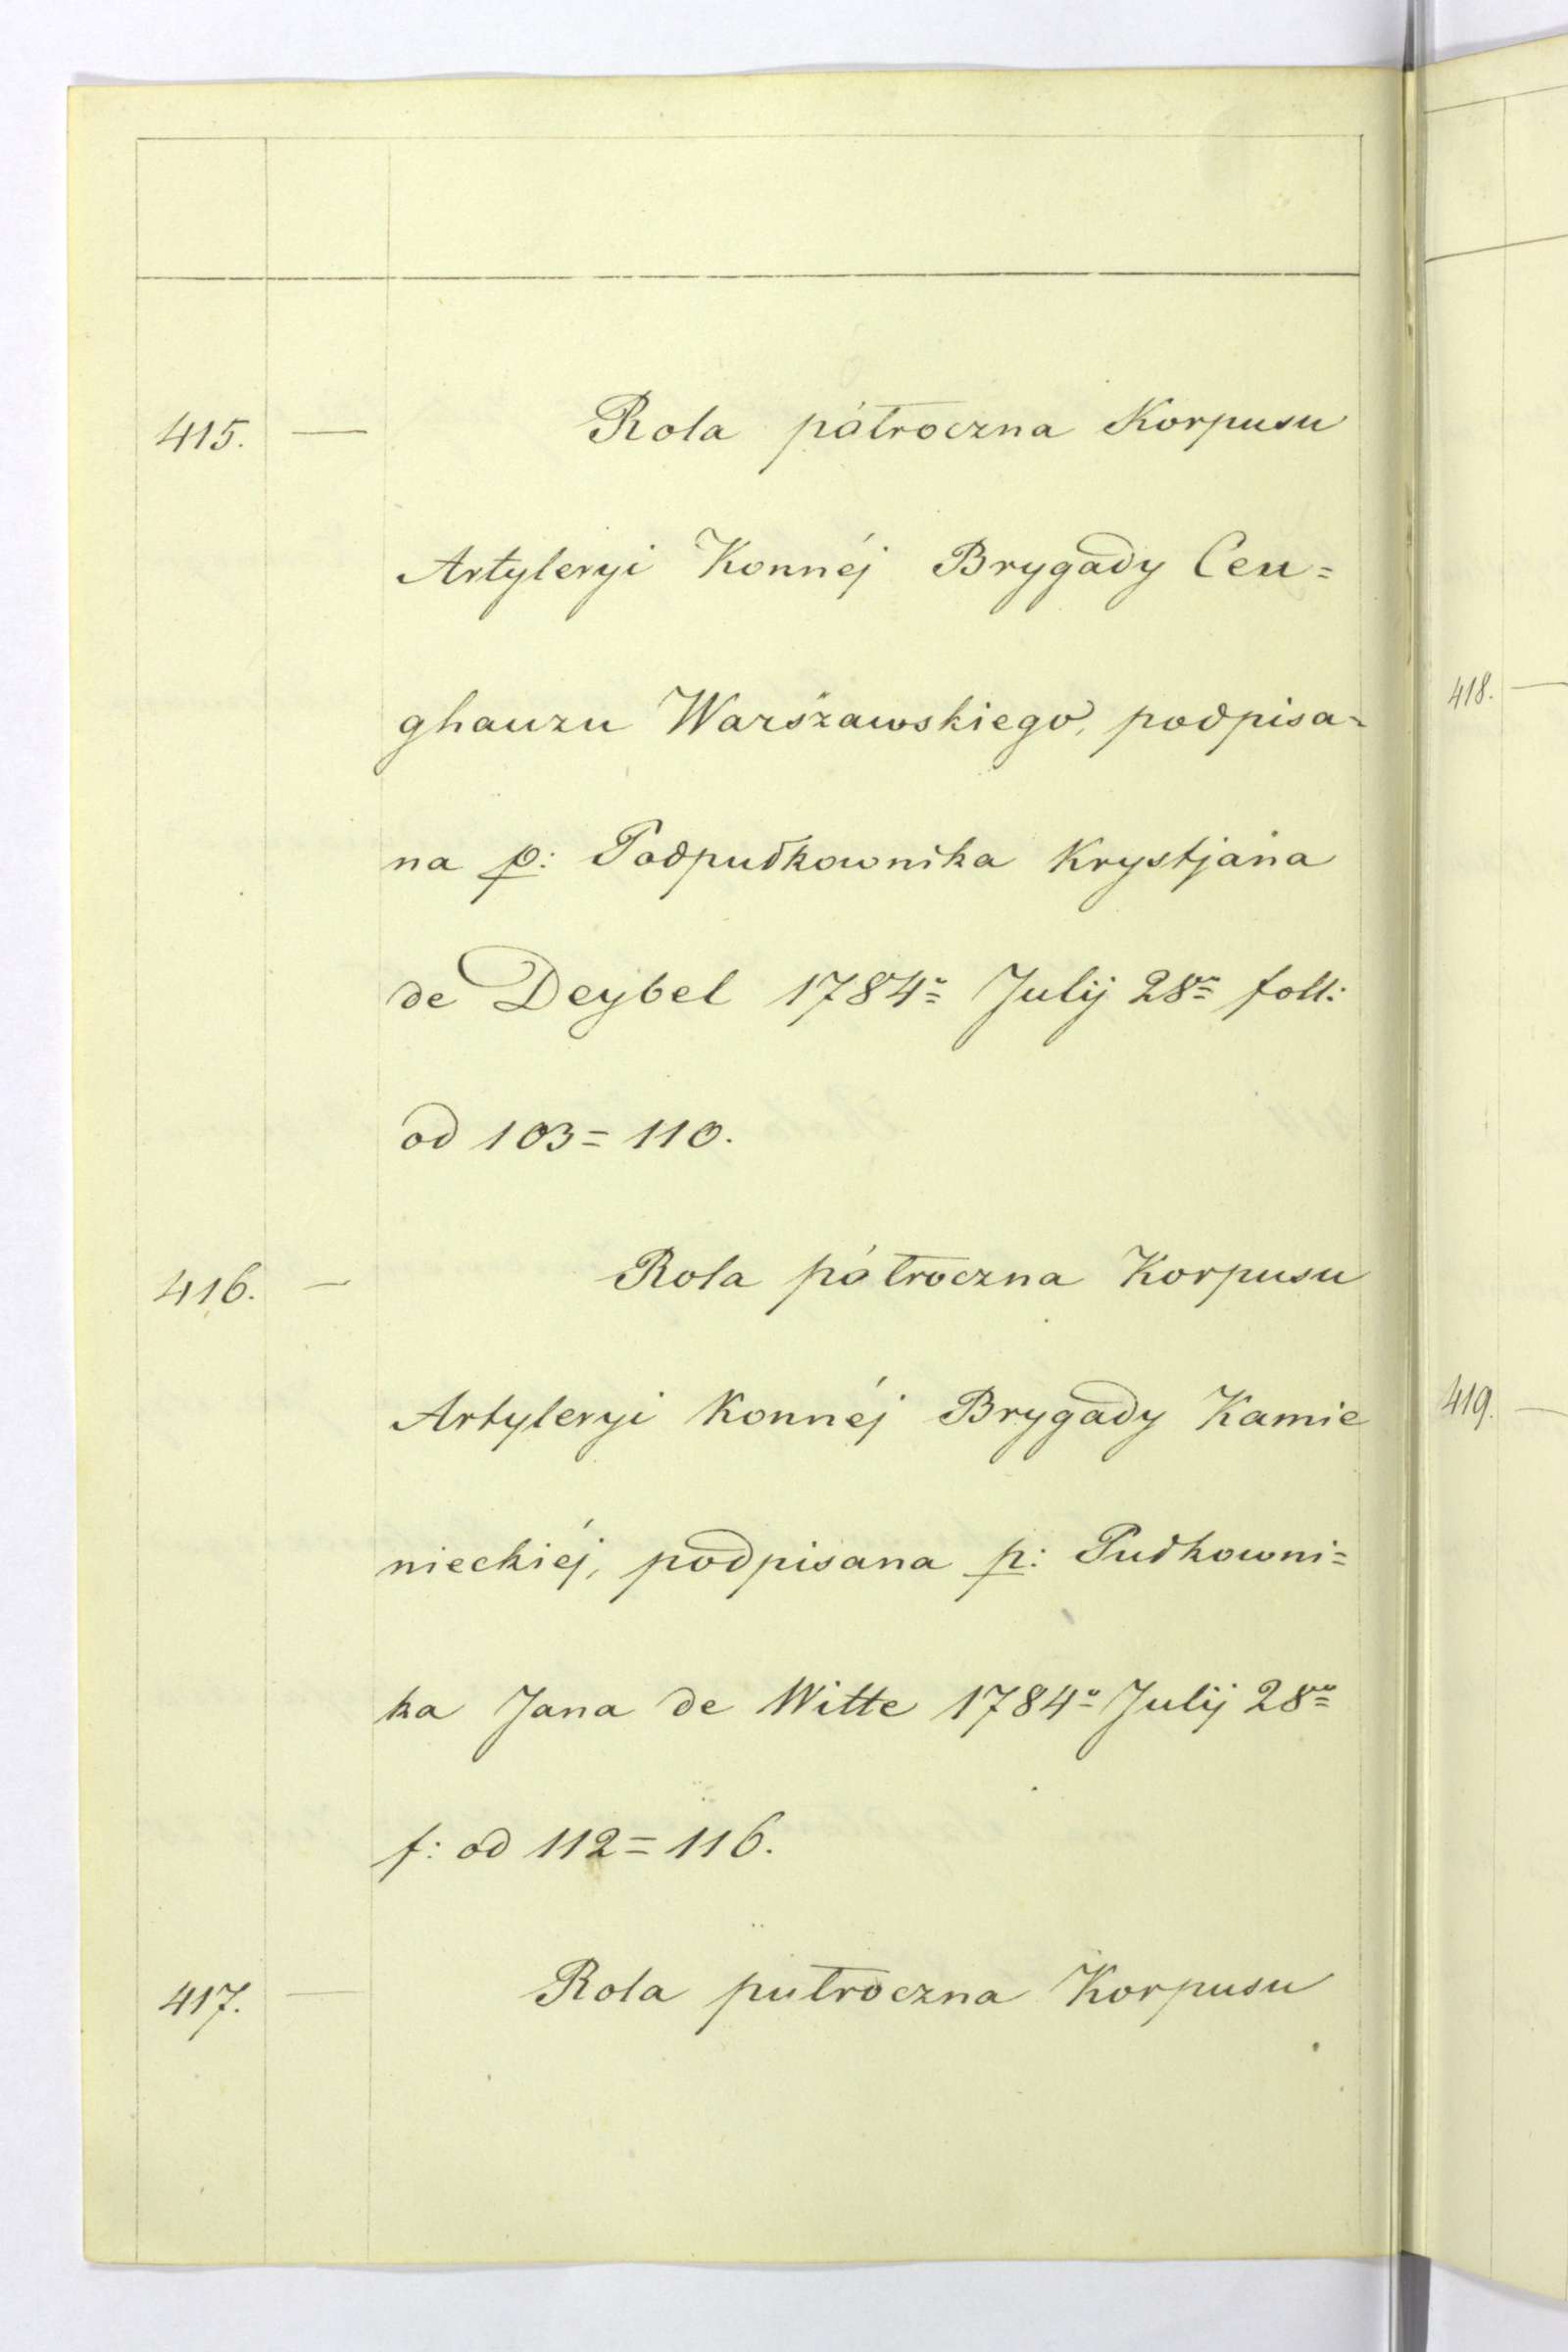 415. — Rola pótroczna Korpusu
Artyleryi Konnéj Brygady Ceu=
ghauzu Warszawskiego, podpisa=
na p: Podpułkownika Krystjana
de Deybel 1784o Julij 28va foll:
od 103=110.
416. — Rola pótroczna Korpusu
Artyleryi Konnéj Brygady Kamie
nieckiéj, podpisana p: Pułkowni=
ka Jana de Witte 1784o Julij 28va
f: od 112=116.
417. — Rola putroczna Korpusu
418. —
419. —